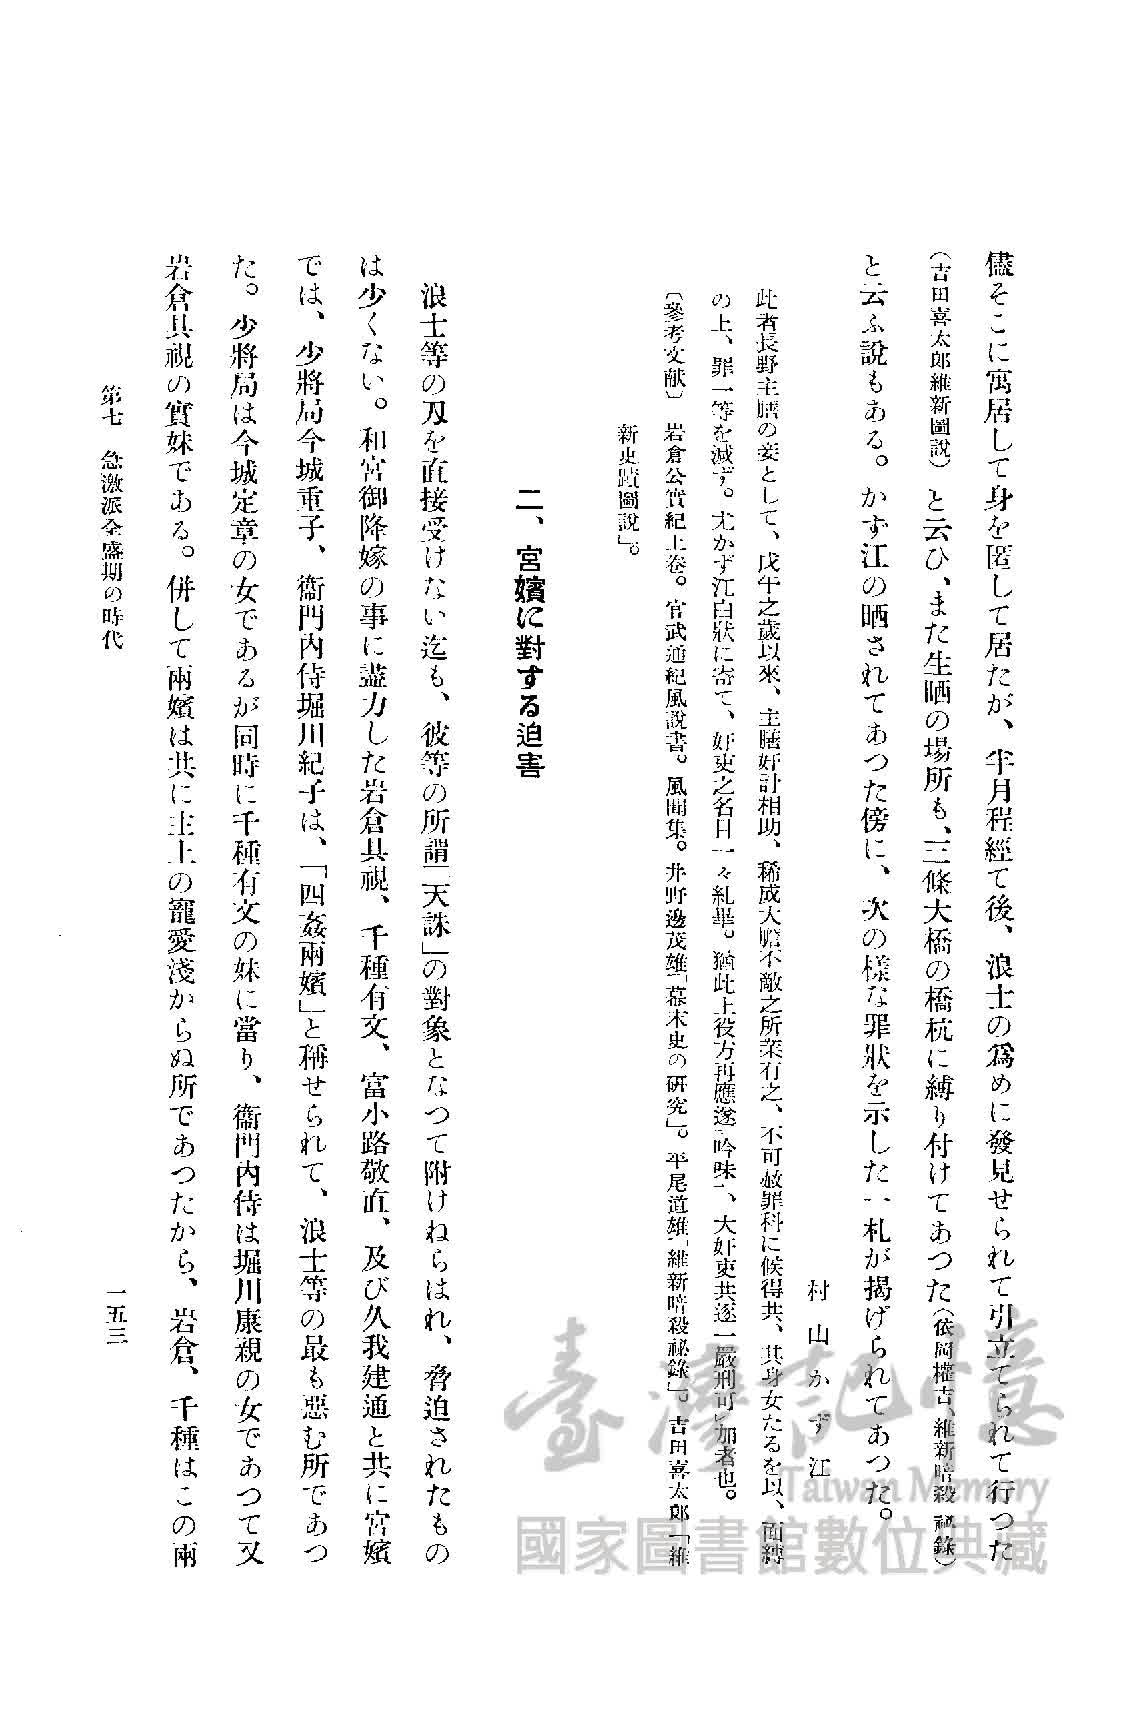 儘そこに寓居して身を匿して居たが、半月程經て後、浪士の爲めに發見せられて引立てられて行つた
(吉田喜太郎維新圖說)と云ひ、また生晒の場所も、三條大橋の橋杭に縛り付けてあつた(依岡權吉、維新暗殺祕錄)
と云ふ說もある。かず江の晒されてあつた傍に、次の樣な罪狀を示した一札が揭げられてあつた。
村山かず江
此者長野主膳の妾として、戊午之歲以來、主膳奸計相助、稀成大膽不敵之所業有之、不可赦罪科に候得共、其身女たるを以、面縛
の上、罪一等を減ず。尤かず江白狀に寄て、奸吏之名目一々糺畢。猶此上役方再應遂吟味、大奸吏共逐一嚴刑可加者也。
〔參考文献〕 岩倉公實紀上卷。官武通紀風說書。風聞集。井野邊茂雄「幕末史の硏究」。平尾道雄「維新暗殺祕錄」。吉田喜太郎「維
新史蹟圖說」。
二、宮嬪に對する迫害
浪士等の刄を直接受けない迄も、彼等の所謂「天誅」の對象となつて附けねらはれ、脅迫されたもの
は少くない。和宮御降嫁の事に盡力した岩倉具視、千種有文、富小路敬直、及び久我建通と共に宮嬪
では、少將局今城重子、衞門內侍堀川紀子は、「四姦兩嬪」と稱せられて、浪士等の最も惡む所であつ
た。少將局は今城定章の女であるが同時に千種有文の妹に當り、衞門內侍は堀川康親の女であつて又
岩倉具視の實妹である。併して兩嬪は共に主上の寵愛淺からぬ所であつたから、岩倉、千種はこの兩
第七 急激派全盛期の時代
一五三
臺灣記憶
Taiwan Memory
國家圖書館數位典藏